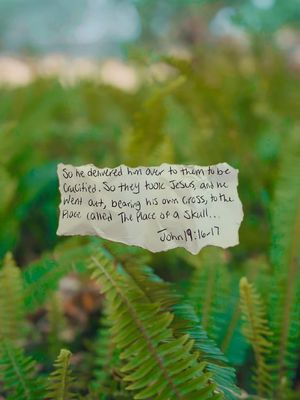 So he delivered him over to them to be
crucified. So they took Jesus, and he
went out, bearing his own cross, to the
Place called The Place of a Skull...
John 19:16-17